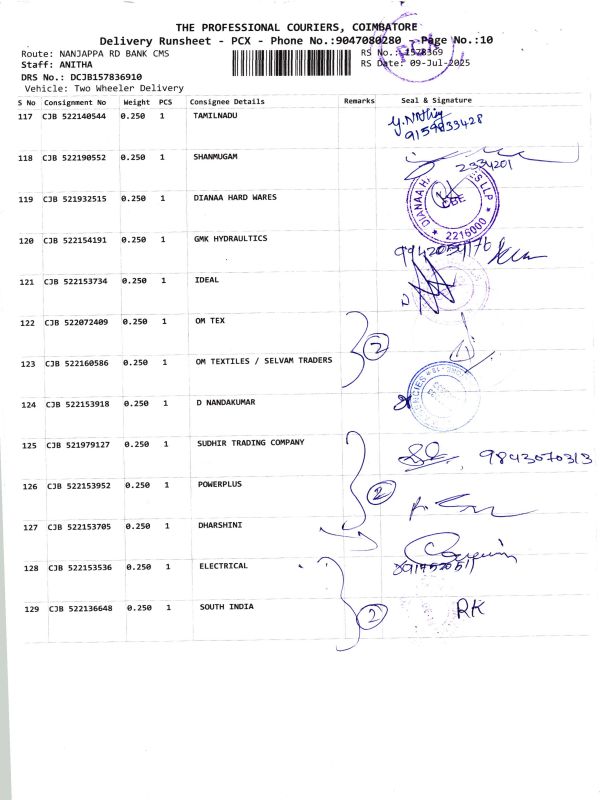 THE PROFESSIONAL COURIERS, COIMBATORE
Delivery Runsheet - PCX - Phone No.:9047080280 - Page No.:10
Route: NANJAPPA RD BANK CMS
RS No.: 1578369
Staff: ANITHA
RS Date: 09-Jul-2025
DRS No.: DCJB157836910
Vehicle: Two Wheeler Delivery
S No Consignment No Weight PCS Consignee Details Remarks Seal & Signature
117 CJB 522140544 0.250 1 TAMILNADU
9159833428
118 CJB 522190552 0.250 1 SHANMUGAM
2334201
119 CJB 521932515 0.250 1 DIANAA HARD WARES
DIANAA LLP CBE * 2216000 *
120 CJB 522154191 0.250 1 GMK HYDRAULTICS
121 CJB 522153734 0.250 1 IDEAL
122 CJB 522072409 0.250 1 OM TEX
2
123 CJB 522160586 0.250 1 OM TEXTILES / SELVAM TRADERS
124 CJB 522153918 0.250 1 D NANDAKUMAR
125 CJB 521979127 0.250 1 SUDHIR TRADING COMPANY
9843070313
126 CJB 522153952 0.250 1 POWERPLUS
2
127 CJB 522153705 0.250 1 DHARSHINI
128 CJB 522153536 0.250 1 ELECTRICAL
129 CJB 522136648 0.250 1 SOUTH INDIA
2
RK